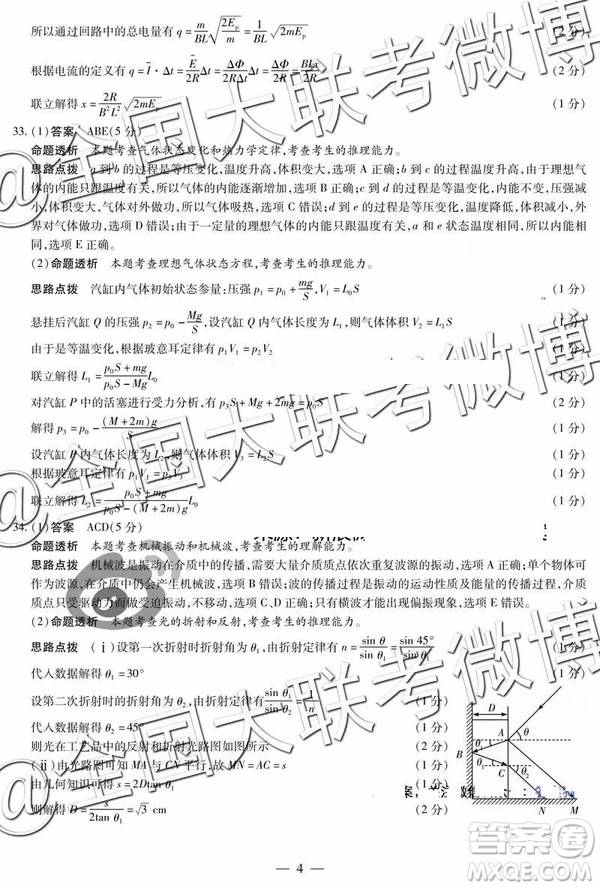 所以通过回路中的总电量有 q = m/BL √(2Eₚ/m) = 1/BL √(2mEₚ) (2分)
根据电流的定义有 q = Ī·Δt = Ē/2R Δt = ΔΦ/2RΔt Δt = ΔΦ/2R = BLx/2R (2分)
联立解得 x = 2R/B²L² √(2mEₚ) (1分)
33. (1)答案 ABE(5分)
命题透析 本题考查气体状态变化和热力学定律,考查考生的推理能力。
思路点拨 a到b的过程是等压变化,温度升高,体积变大,选项A正确;b到c的过程温度升高,由于理想气
体的内能只跟温度有关,所以气体的内能逐渐增加,选项B正确;c到d的过程温度不变,内能不变,压强减
小,体积变大,气体对外做功,所以气体吸热,选项C错误;d到e的过程是等压变化,温度降低,体积变小,外
界对气体做功,选项D错误;由于一定量的理想气体的内能只跟温度有关,a和e状态温度相同,所以内能
相同,选项E正确。
(2)命题透析 本题考查理想气体状态方程,考查考生的推理能力。
思路点拨 汽缸内气体初始状态参量:压强 p₁ = p₀ + mg/S, V₁ = L₀S (1分)
悬挂后汽缸Q的压强 p₂ = p₀ − Mg/S,设汽缸Q内气体长度为L₁,则气体体积 V₂ = L₁S (1分)
由于是等温变化,根据玻意耳定律有 p₁V₁ = p₂V₂ (1分)
联立解得 L₁ = (p₀S+mg)/(p₀S−Mg) L₀ (1分)
对汽缸P中的活塞进行受力分析,有 p₃S + Mg + 2mg = p₀S (2分)
解得 p₃ = p₀ − (M+2m)g/S (1分)
设汽缸P内气体长度为L₂,则气体体积 V₃ = L₂S
根据玻意耳定律有 p₁V₁ = p₃V₃
联立解得 L₂ = (p₀S+mg)/(p₀S−(M+2m)g) L₀ (1分)
34. (1)答案 ACD(5分)
命题透析 本题考查机械振动和机械波,考查考生的理解能力。
思路点拨 机械波是振动在介质中的传播,需要大量介质质点依次重复波源的振动,选项A正确;单个物体可
作为波源,在介质中仍会产生机械波,选项B错误;波的传播过程是振动的运动性质及能量的传播,介质质
点只受迫振动而不会随波迁移,选项C、D正确;只有横波才能出现偏振现象,选项E错误。
(2)命题透析 本题考查光的折射和反射,考查考生的推理能力。
思路点拨 (ⅰ)设第一次折射时折射角为θ₁,由折射定律有 n = sin θ/sin θ₁ = sin 45°/sin θ₁ (1分)
代人数据解得 θ₁ = 30° (1分)
设第二次折射时的折射角为θ₂,由折射定律有 sin θ₁/sin θ₂ = 1/n (1分)
代人数据解得 θ₂ = 45° (1分)
则光在工艺品中的反射和折射光路图如图所示 (2分)
(ⅱ)由光路图可知MA与CN平行,故MN = AC = s (1分)
由几何知识可得 s = 2Dtan θ₁ (1分)
则解得 D = s/(2tan θ₁) = √3 cm (2分)
D
A
θ
B
θ₁
C
θ₂
N
M
— 4 —
@全国大联考微博
@全国大联考微博
@全国大联考微博
答案圈
MXQE.COM